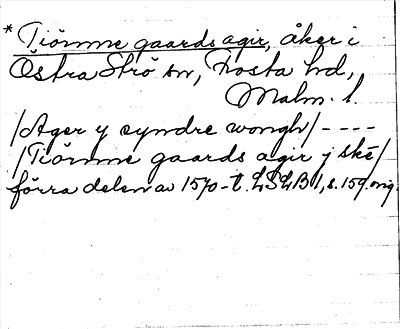 * Tiömme gaards agir, åker i
Östra Strö sn, Frosta hd,
Malm. l.
/Ager y syndre wongh/ - - - -
/Tiömme gaards agir j ske/
förra delen av 1570-t. LSLB 1, s. 159. orig.